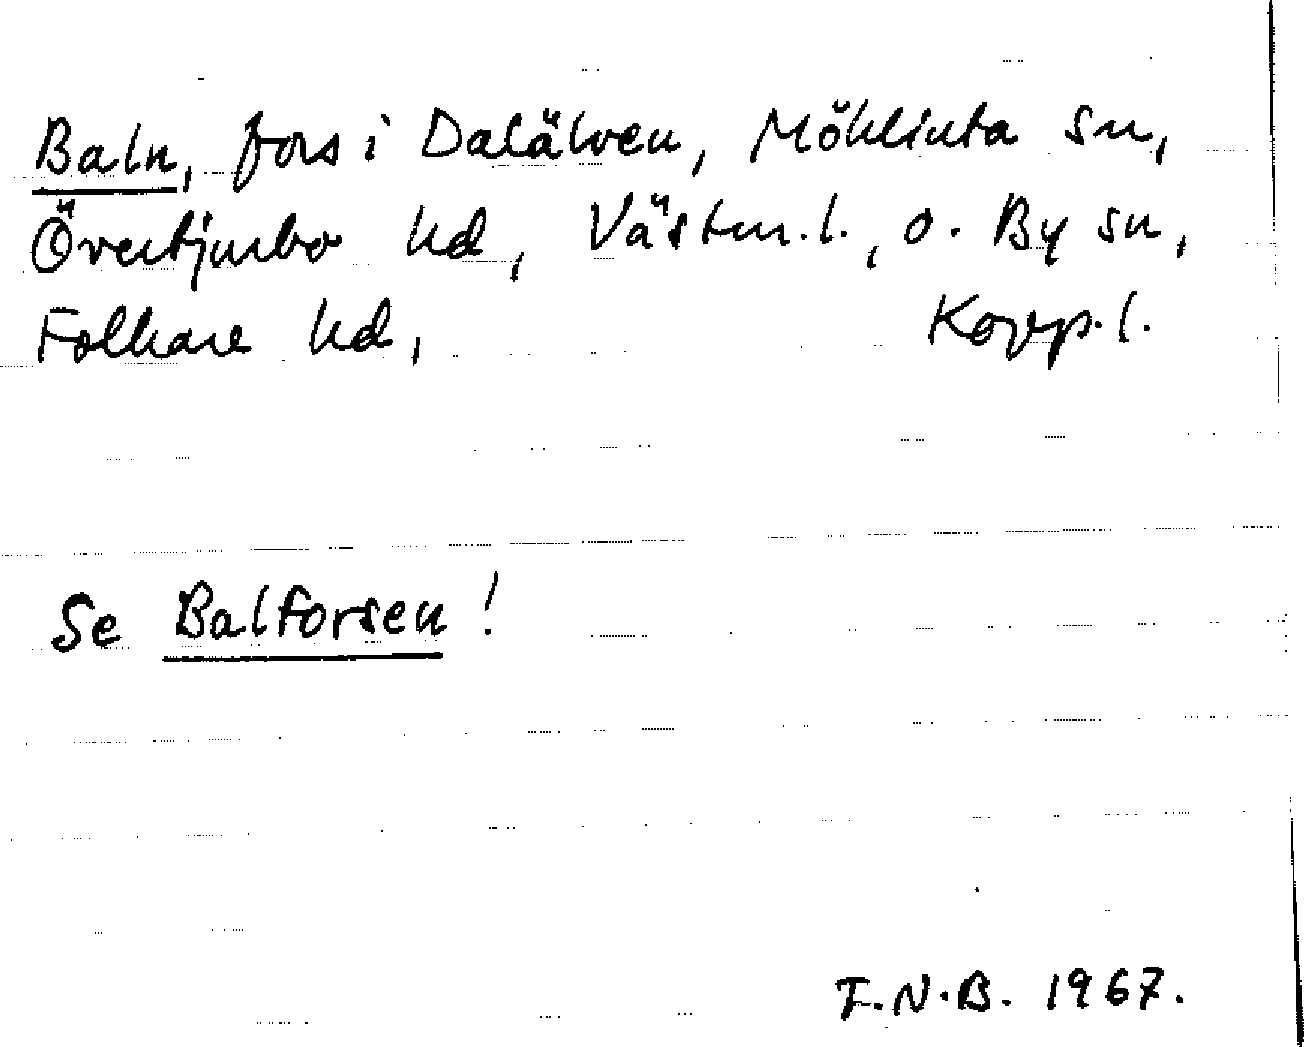 Baln, fors i Dalälven, Möklinta sn,
Övertjurbo hd, Västm.l., o. By sn,
Folkare hd, Kopp.l.
Se Balforsen!
F.N.B. 1967.